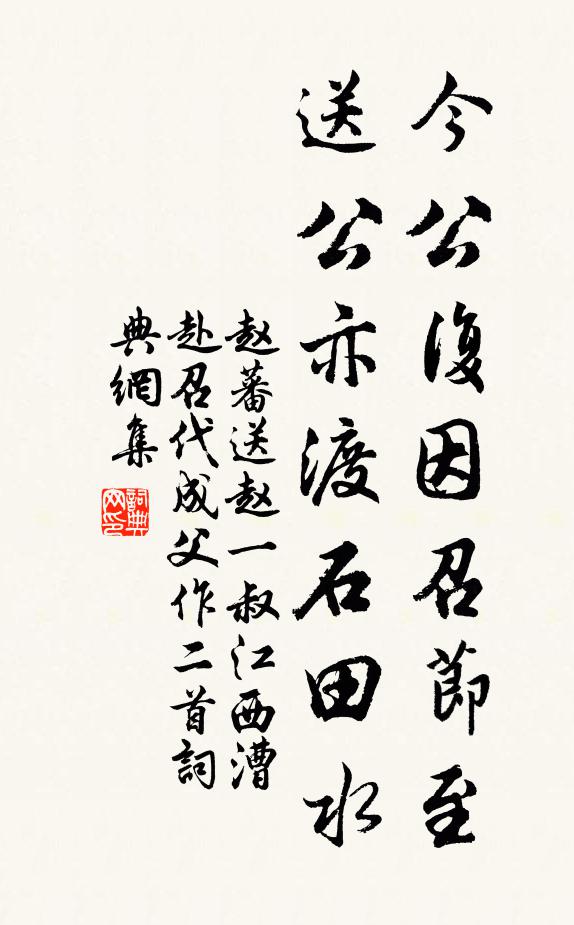 今公復因召節至
送公亦渡石田水
赵蕃送赵一叔江西漕
赴召代成父作二首詞
典網集
詞典
网印